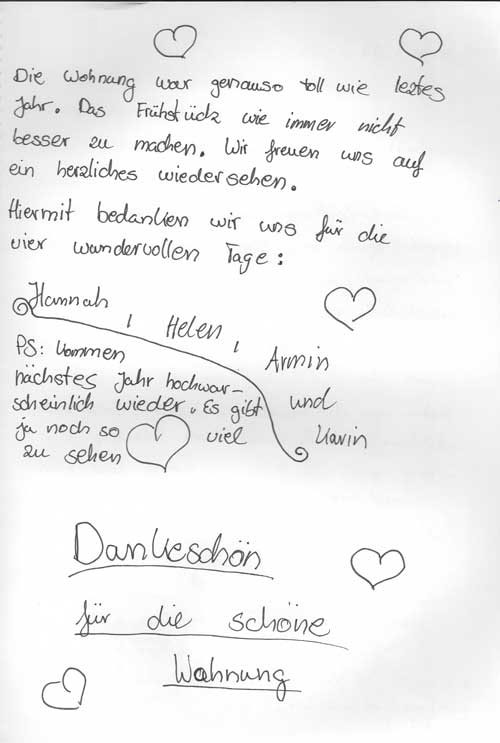 Die Wohnung war genauso toll wie leztes
Jahr. Das Frühstück wie immer nicht
besser zu machen. Wir freuen uns auf
ein herzliches wiedersehen.
Hiermit bedanken wir uns für die
vier wundervollen Tage:
Hannah, Helen, Armin
und
Karin
PS: kommen
nächstes Jahr hochwar-
scheinlich wieder. Es gibt
ja noch so viel
zu sehen
Dankeschön
für die schöne
Wohnung